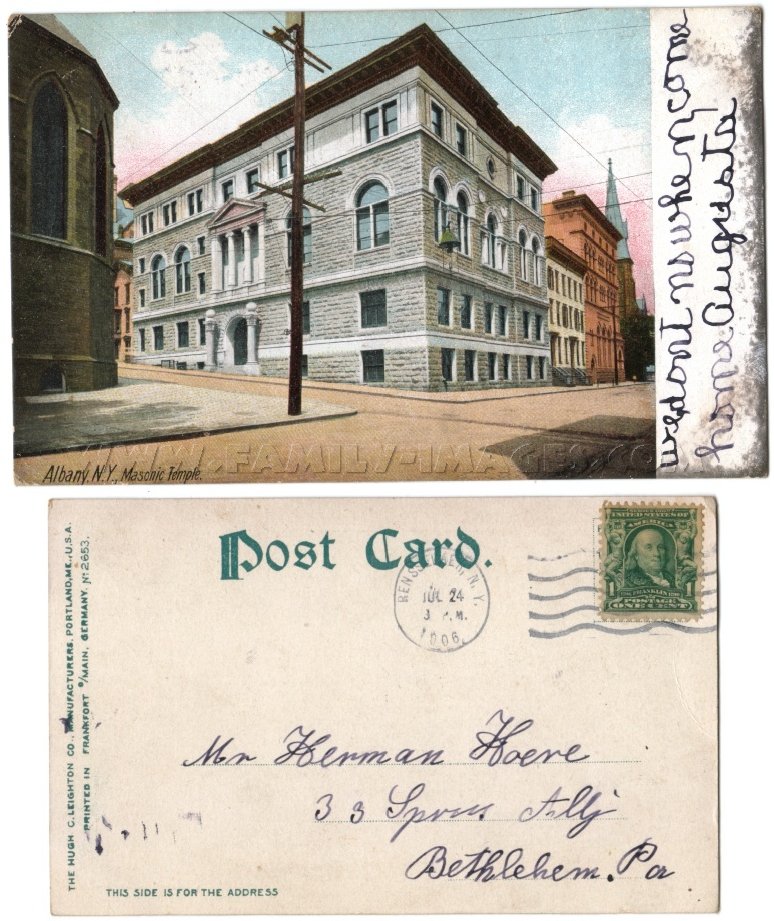 wedont no when y come
home Augusta
WWW.FAMILY-IMAGES.COM
Albany, N.Y., Masonic Temple.
THE HUGH C. LEIGHTON CO., MANUFACTURERS, PORTLAND, ME., U.S.A.
PRINTED IN FRANKFORT o/MAIN, GERMANY. No 2653.
Post Card.
RENSSELAER, N.Y.
JUL 24
3 P.M.
1906
UNITED STATES OF
AMERICA
1
FRANKLIN
POSTAGE
ONE CENT
Mr Herman Hoere
33 Sprus Ally
Bethlehem. Pa
THIS SIDE IS FOR THE ADDRESS